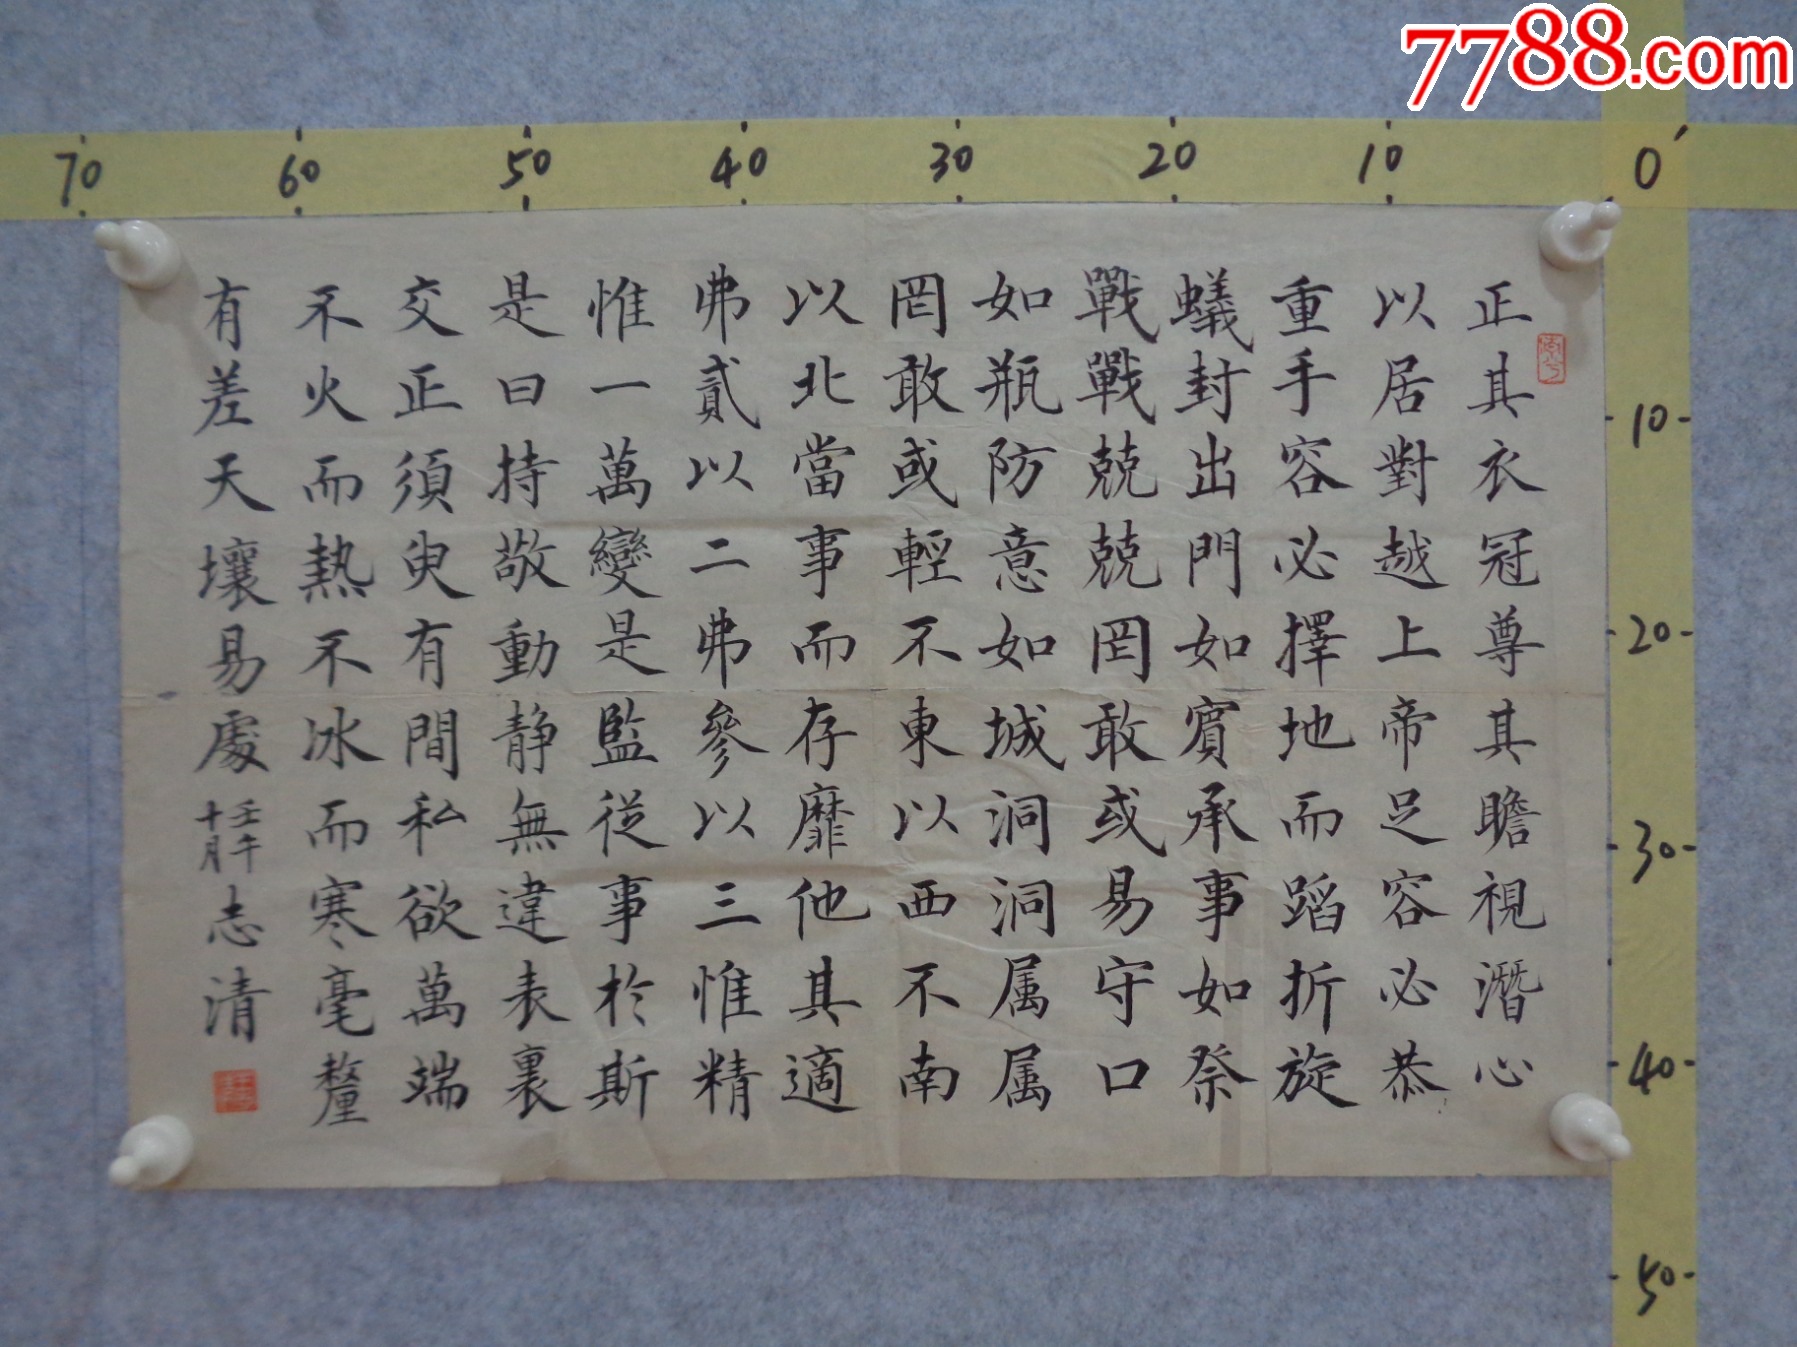 7788.com
70 60 50 40 30 20 10 0
10
20
30
40
50
正其衣冠尊其瞻視潛心
以居對越上帝足容必恭
重手容必擇地而蹈折旋
蟻封出門如賓承事如祭
戰戰兢兢罔敢或易守口
如瓶防意如城洞洞属属
罔敢或輕不東以西不南
以北當事而存靡他其適
弗貳以二弗參以三惟精
惟一萬變是監從事於斯
是曰持敬動静無違表裏
交正須臾有間私欲萬端
不火而熱不冰而寒毫釐
有差天壤易處
壬午
十月
志清